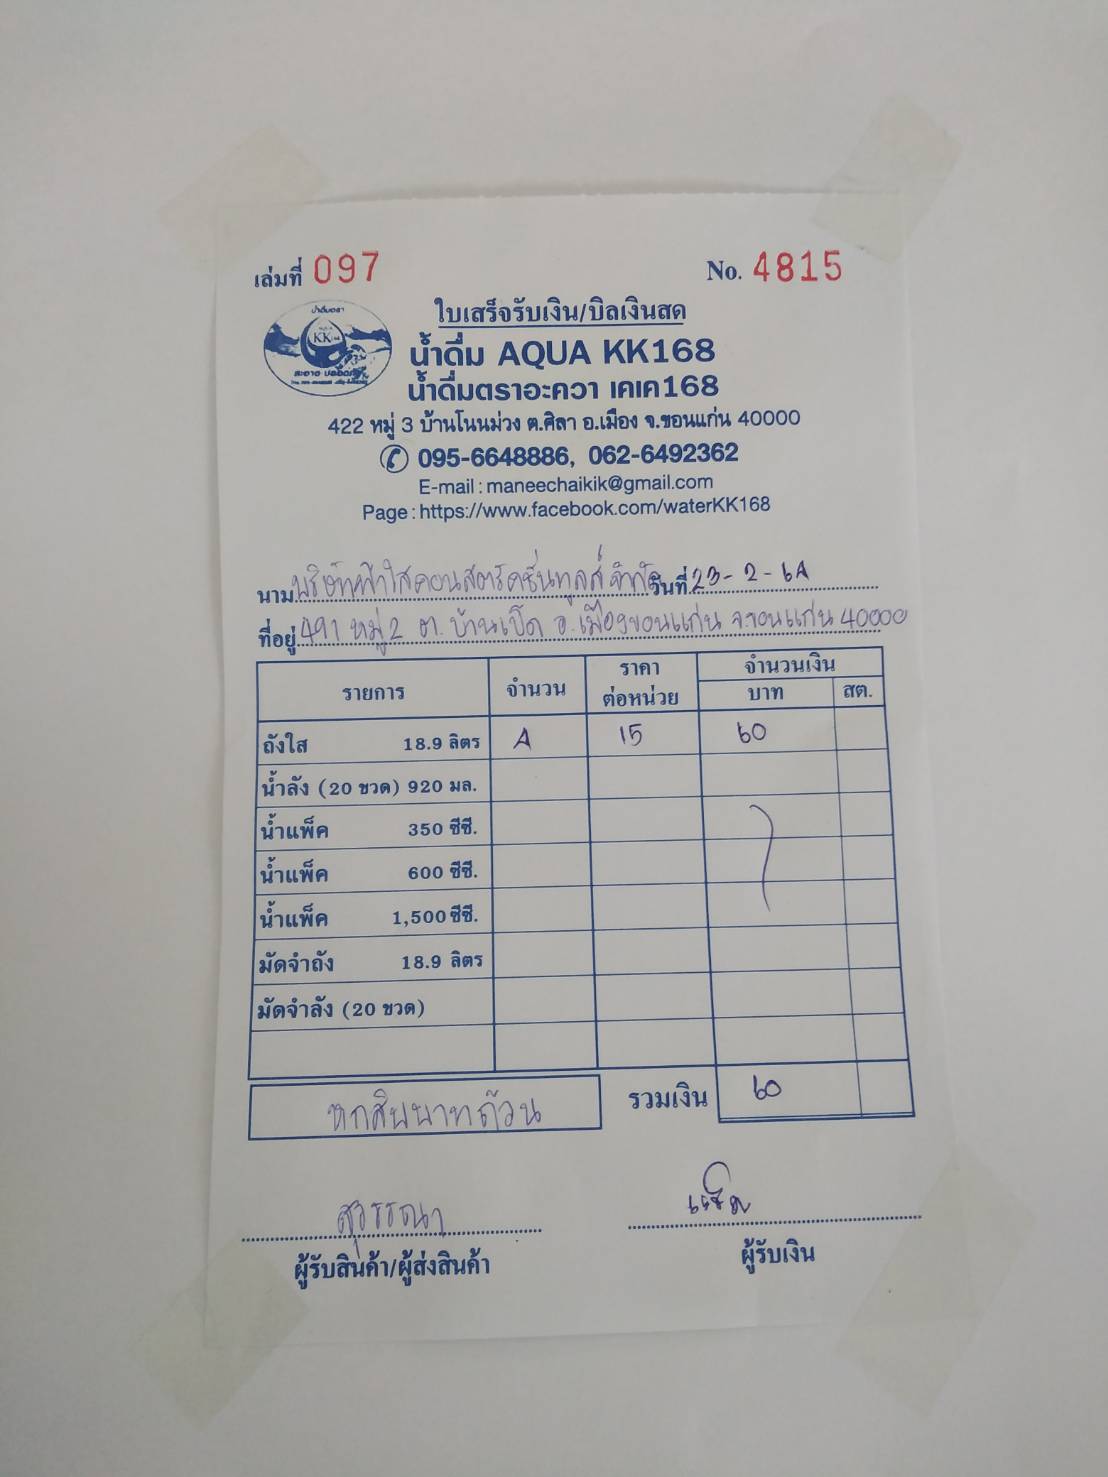 เล่มที่ 097 No. 4815
ใบเสร็จรับเงิน/บิลเงินสด
น้ำดื่มตรา
KK168
สะอาด ปลอดภัย
น้ำดื่ม AQUA KK168
น้ำดื่มตราอะควา เคเค168
422 หมู่ 3 บ้านโนนม่วง ต.ศิลา อ.เมือง จ.ขอนแก่น 40000
095-6648886, 062-6492362
E-mail : maneechaikik@gmail.com
Page : https://www.facebook.com/waterKK168
นาม บริษัทฟ้าใสคอนสตรัคชั่นทูลส์ จำกัด วันที่ 23-2-64
ที่อยู่ 491 หมู่ 2 ต.บ้านเป็ด อ.เมืองขอนแก่น จ.ขอนแก่น 40000
รายการ จำนวน ราคาต่อหน่วย จำนวนเงิน
บาท สต.
ถังใส 18.9 ลิตร 4 15 60
น้ำลัง (20 ขวด) 920 มล.
น้ำแพ็ค 350 ซีซี.
น้ำแพ็ค 600 ซีซี.
น้ำแพ็ค 1,500 ซีซี.
มัดจำถัง 18.9 ลิตร
มัดจำลัง (20 ขวด)
หกสิบบาทถ้วน รวมเงิน 60
สุวรรณา
ผู้รับสินค้า/ผู้ส่งสินค้า ผู้รับเงิน